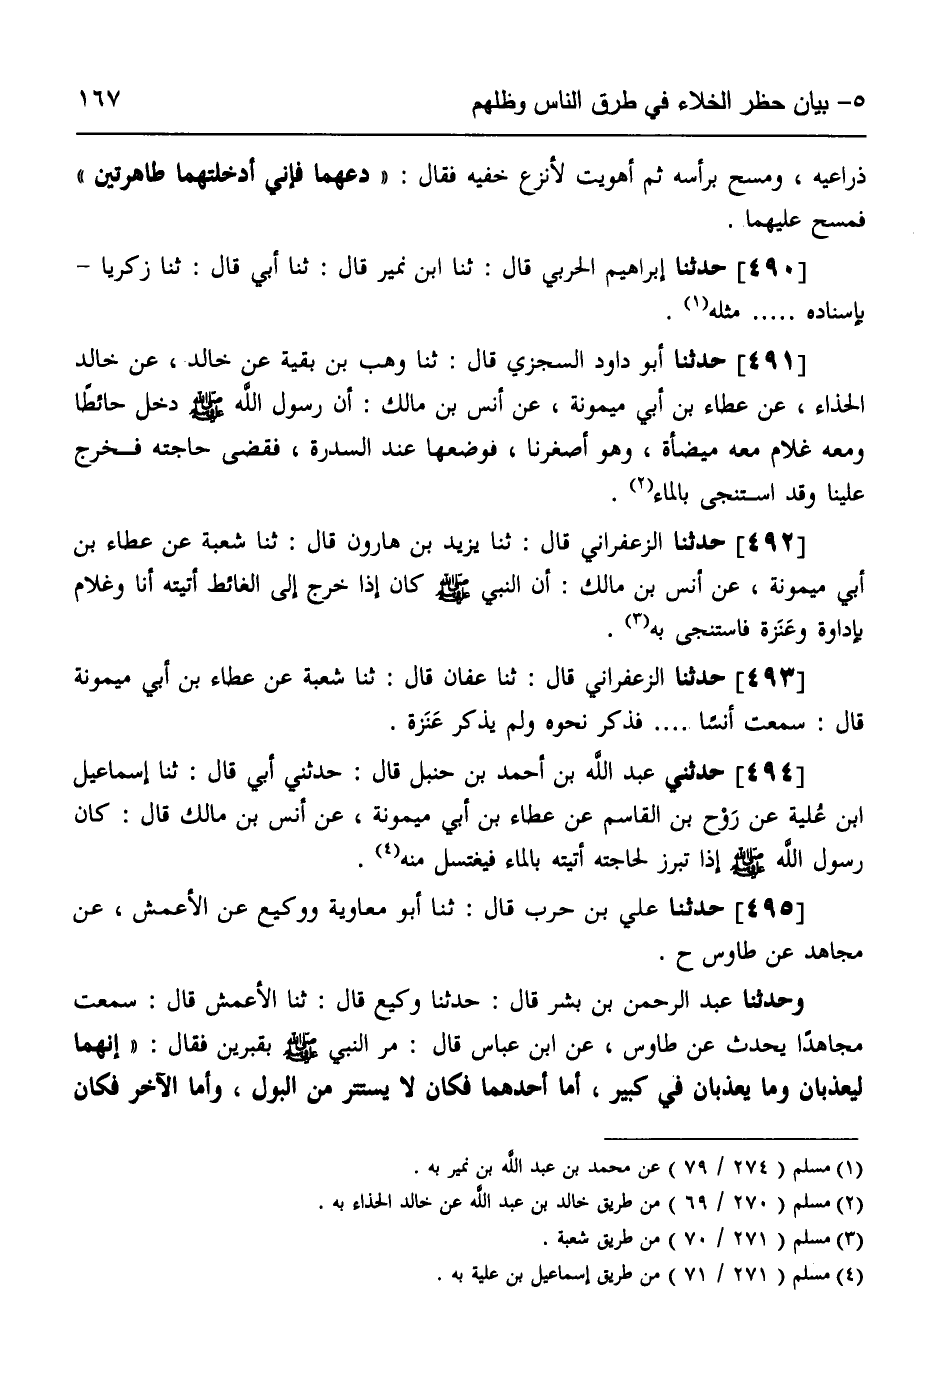 ٥- بيان حظر الخلاء في طرق الناس وظلهم ١٦٧
ذراعيه ، ومسح برأسه ثم أهويت لأنزع خفيه فقال : « دعهما فإني أدخلتهما طاهرتين »
فمسح عليهما .
[٤٩٠] حدثنا إبراهيم الحربي قال : ثنا ابن نمير قال : ثنا أبي قال : ثنا زكريا -
بإسناده ..... مثله(١) .
[٤٩١] حدثنا أبو داود السجزي قال : ثنا وهب بن بقية عن خالد ، عن خالد
الحذاء ، عن عطاء بن أبي ميمونة ، عن أنس بن مالك : أن رسول اللَّه ﷺ دخل حائطًا
ومعه غلام معه ميضأة ، وهو أصغرنا ، فوضعها عند السدرة ، فقضى حاجته فـخرج
علينا وقد استنجى بالماء(٢) .
[٤٩٢] حدثنا الزعفراني قال : ثنا يزيد بن هارون قال : ثنا شعبة عن عطاء بن
أبي ميمونة ، عن أنس بن مالك : أن النبي ﷺ كان إذا خرج إلى الغائط أتيته أنا وغلام
بإداوة وعَنَزة فاستنجى به(٣) .
[٤٩٣] حدثنا الزعفراني قال : ثنا عفان قال : ثنا شعبة عن عطاء بن أبي ميمونة
قال : سمعت أنسًا .... فذكر نحوه ولم يذكر عَنَزة .
[٤٩٤] حدثني عبد اللَّه بن أحمد بن حنبل قال : حدثني أبي قال : ثنا إسماعيل
ابن عُلية عن رَوْح بن القاسم عن عطاء بن أبي ميمونة ، عن أنس بن مالك قال : كان
رسول اللَّه ﷺ إذا تبرز لحاجته أتيته بالماء فيغتسل منه(٤) .
[٤٩٥] حدثنا علي بن حرب قال : ثنا أبو معاوية ووكيع عن الأعمش ، عن
مجاهد عن طاوس ح .
وحدثنا عبد الرحمن بن بشر قال : حدثنا وكيع قال : ثنا الأعمش قال : سمعت
مجاهدًا يحدث عن طاوس ، عن ابن عباس قال : مر النبي ﷺ بقبرين فقال : « إنهما
ليعذبان وما يعذبان في كبير ، أما أحدهما فكان لا يستتر من البول ، وأما الآخر فكان
(١) مسلم ( ٢٧٤ / ٧٩ ) عن محمد بن عبد اللَّه بن نمير به .
(٢) مسلم ( ٢٧٠ / ٦٩ ) من طريق خالد بن عبد اللَّه عن خالد الحذاء به .
(٣) مسلم ( ٢٧١ / ٧٠ ) من طريق شعبة .
(٤) مسلم ( ٢٧١ / ٧١ ) من طريق إسماعيل بن علية به .